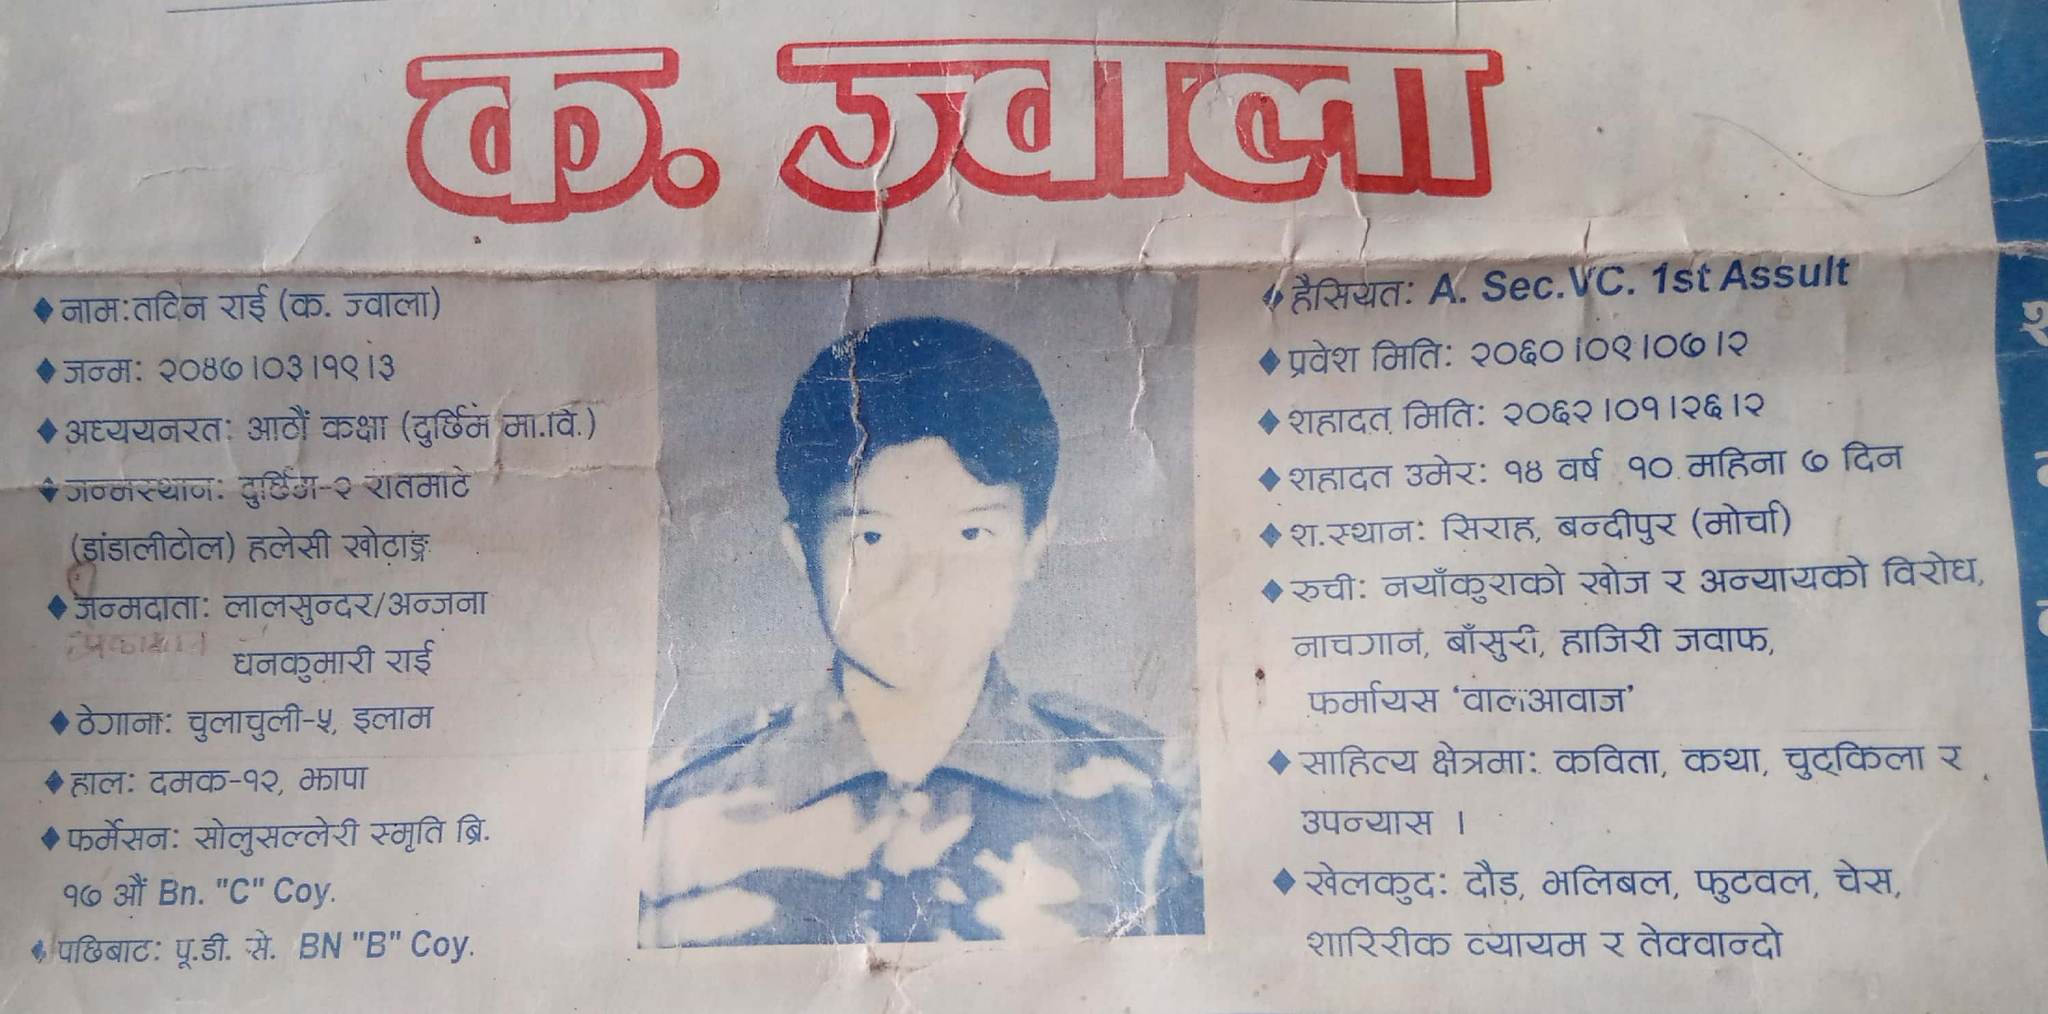 क. ज्वाला
◆ नाम: तदिन राई (क. ज्वाला)
◆ जन्म: २०४७।०३।१९।३
◆ अध्ययनरत: आठौं कक्षा (दुर्छिम मा.वि.)
◆ जन्मस्थान: दुर्छिम-२ रातमाटे
(डांडालीटोल) हलेसी खोटाङ्ग
◆ जन्मदाता: लालसुन्दर/अन्जना
धनकुमारी राई
◆ ठेगाना: चुलाचुली-५, इलाम
◆ हाल: दमक-१२, झापा
◆ फर्मेसन: सोलुसल्लेरी स्मृति ब्रि.
१७ औं Bn. "C" Coy.
◆ पछिबाट: पू.डी. से. BN "B" Coy.
◆ हैसियत: A. Sec.VC. 1st Assult
◆ प्रवेश मिति: २०६०।०९।०७।२
◆ शहादत मिति: २०६२।०१।२६।२
◆ शहादत उमेर: १४ वर्ष १० महिना ७ दिन
◆ श.स्थान: सिराह, बन्दीपुर (मोर्चा)
◆ रुची: नयाँकुराको खोज र अन्यायको विरोध,
नाचगान, बाँसुरी, हाजिरी जवाफ,
फर्मायस 'वालआवाज'
◆ साहित्य क्षेत्रमा: कविता, कथा, चुट्किला र
उपन्यास ।
◆ खेलकुद: दौड, भलिबल, फुटवल, चेस,
शारिरीक व्यायम र तेक्वान्दो